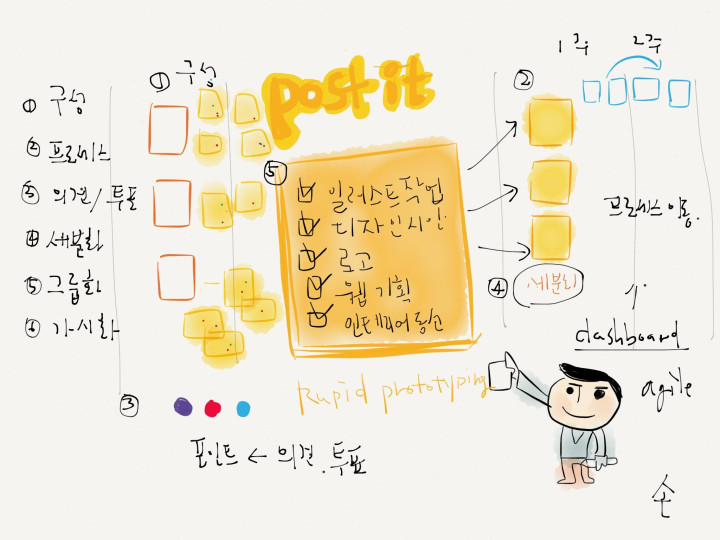 ① 구성
② 프로세스
③ 의견/투표
④ 세분화
⑤ 그룹화
⑥ 가시화
① 구성
post-it
⑤
일러스트작업
디자인시안
로고
웹 기획
Rupid prototyping
③
포인트 ← 의견.투표
②
1주 2주
프로세스이동.
④ 세분화
dashboard
agile
손